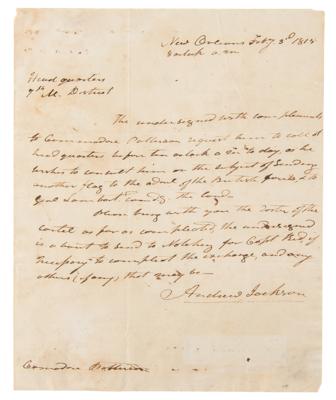 New Orleans Feby 3d 1815
8 oclock a.m.
Head quarters
7th M. District
The undersigned with compliments
to Commodore Patterson request him to call at
head quarters before ten oclock a.m. to day, as he
wishes to consult him on the subject of sending
another flag to the adml of the British forces & to
Genl Lambert comdg the land.
Please bring with you the roster of the
cartel as far as compleated, the undersigned
is about to send to Natchez for Capt
to compleat the exchange, and any
others (if any) that may be—
Andrew Jackson
Comodore Patterson